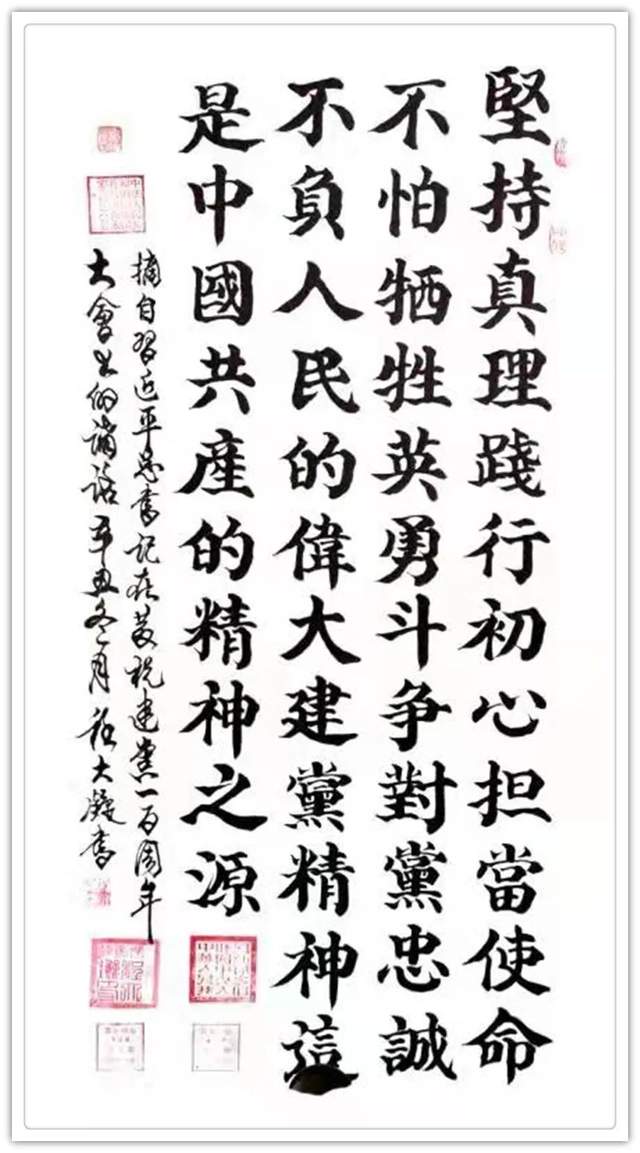 堅持真理踐行初心担當使命
不怕牺牲英勇斗争對黨忠誠
不負人民的偉大建黨精神這
是中國共産的精神之源
摘自習近平总書记在慶祝建党一百周年
大會上的講话辛丑冬月